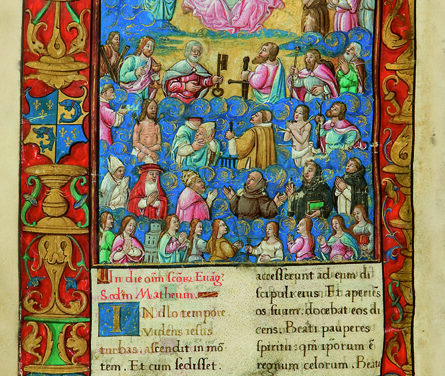 In die oīm scōꝝ Euāg:
Scd̄m Matheum.
IN illo tempore
Videns iesus
turbas, ascendit in mō
tem. Et cum sedisset.
accesserunt ad eum di
scipuli eius. Et aperiēs
os suum. docebat eos di
cens. Beati pauperes
spiritu: qm̄ ip̄orum ē
regnum celorum. Beati